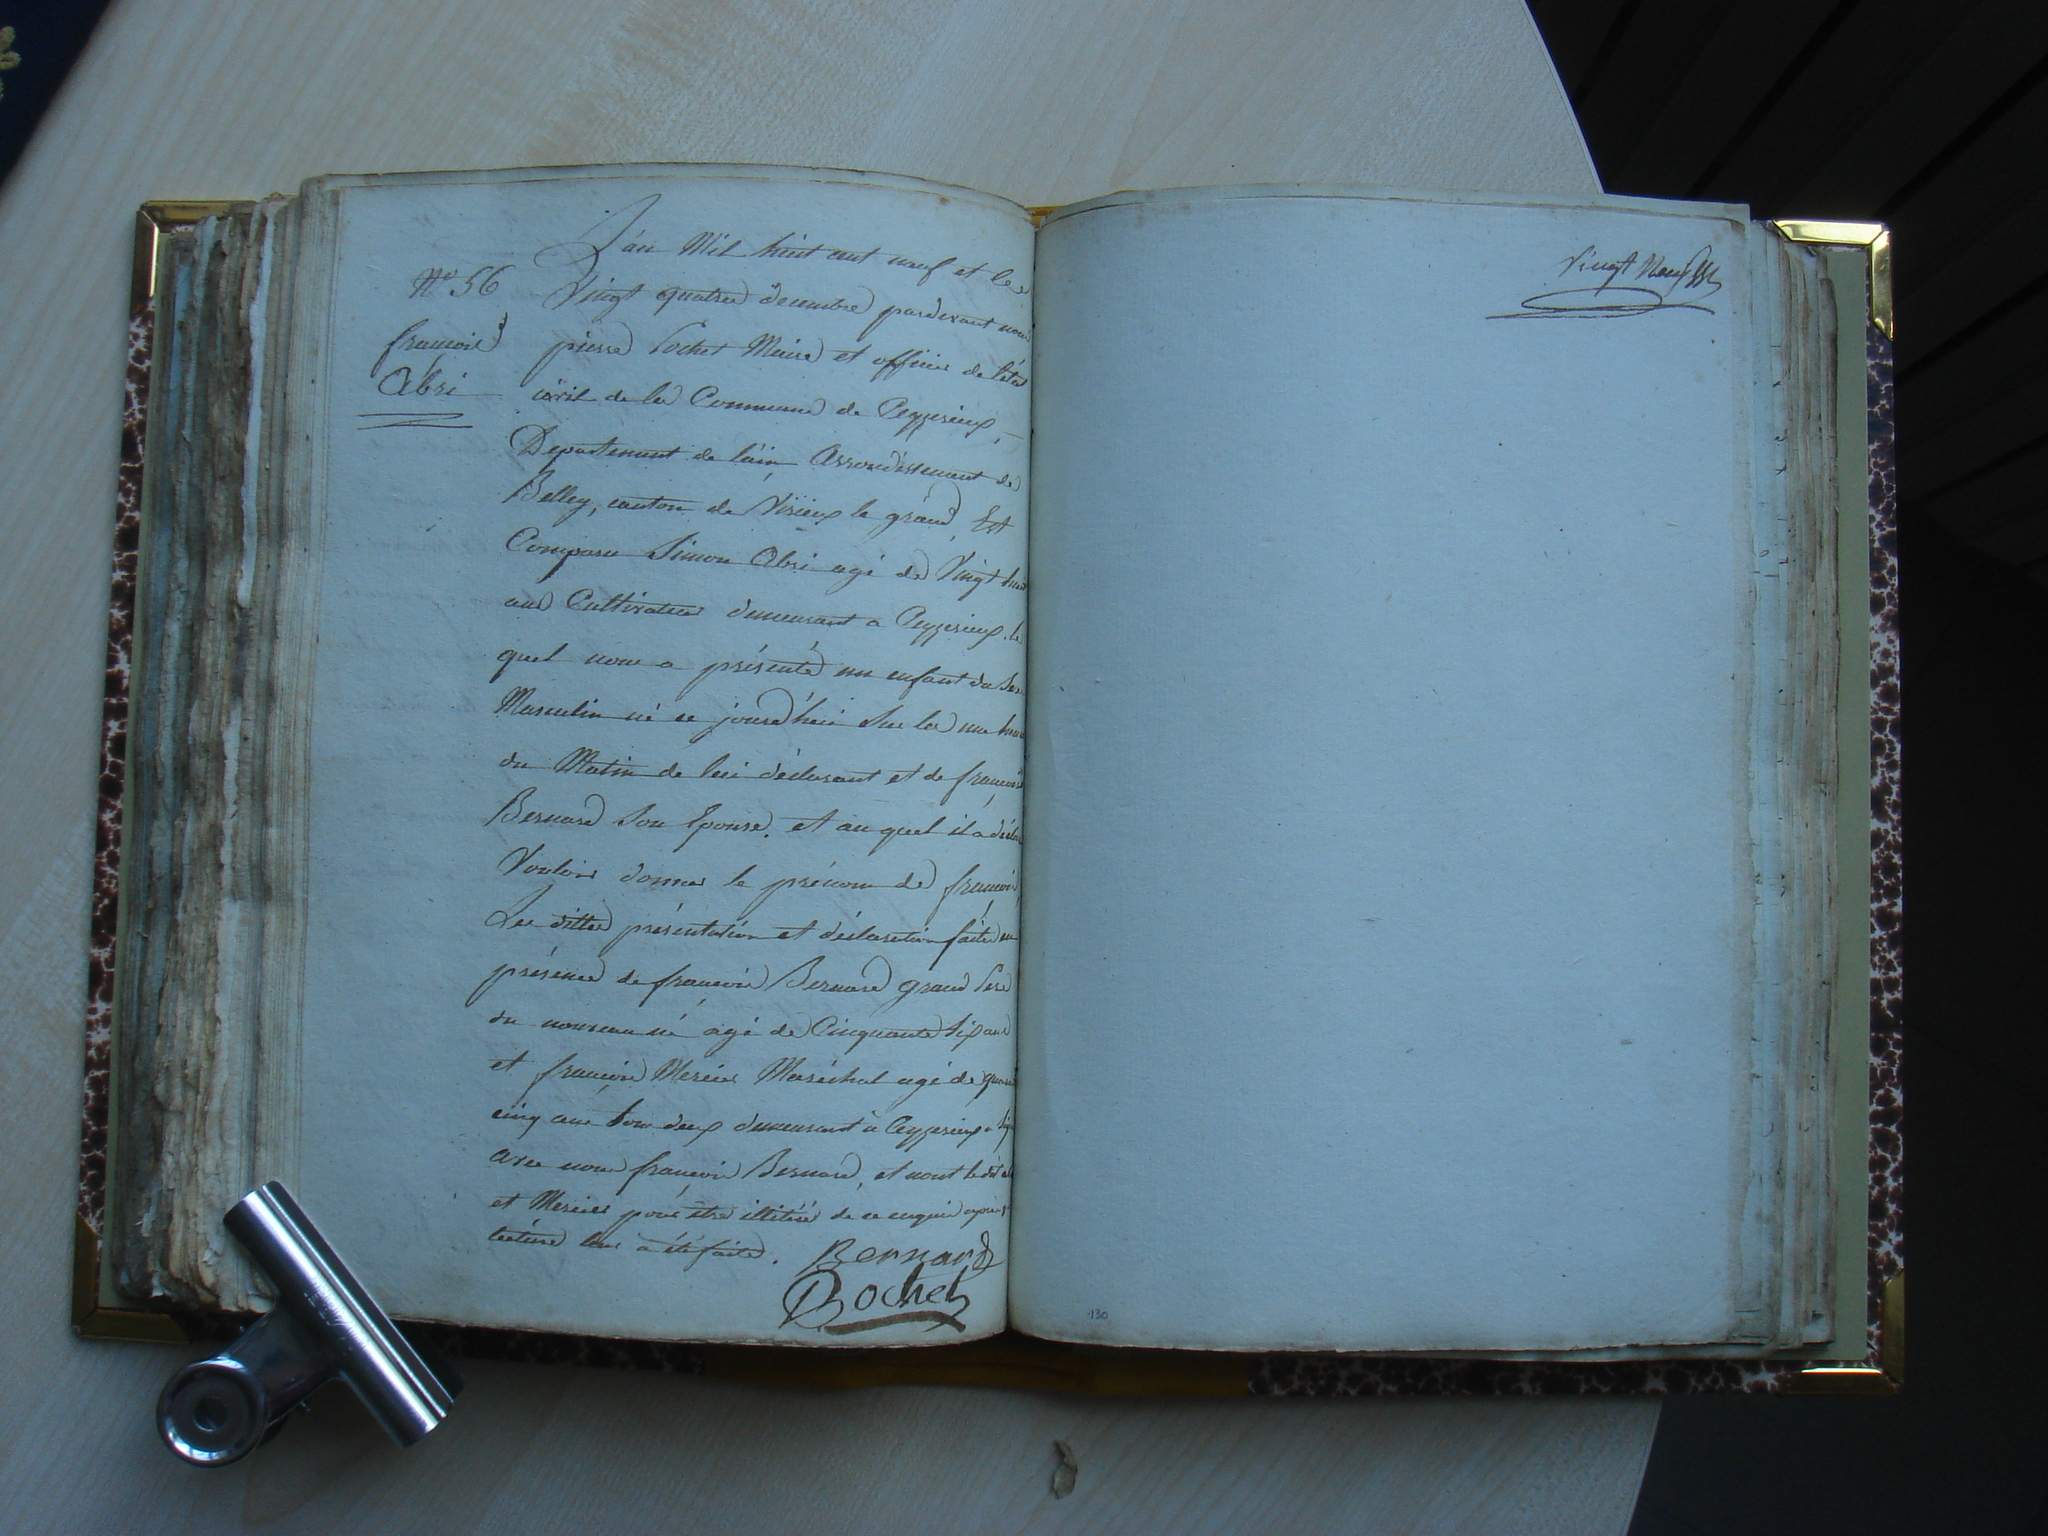 L'an Mil huit cent neuf et le
N.° 56
Vingt quatre decembre pardevant nous
françois
pierre Pochet Maire et officier de l'état
Abri
civil de la Commune de Ceyzerieux,
Departement de l'ain Arrondissement de
Belley, canton de Virieux le grand, Est
Comparu Simon Abri agé de Vingt huit
ans Cultivateur demeurant a Ceyzerieux, le
quel nous a présenté un enfant du Sexe
Masculin né ce jourd'hui Sur la une heure
du Matin de lui déclarant et de françoise
Bernard Son Epouse, et au quel il a déclaré
Vouloir donner le prénom de françois,
Les dittes présentation et déclaration faites en
présence de françois Bernard grand Pere
du nouveau né agé de Cinquante Six ans
et françois Mercier Maréchal agé de quarante
cinq ans tous deux demeurant à Ceyzerieux a Signé
avec nous françois Bernard, et nont le dit
et Mercier pour être illitéré de ce enquis après
lecture leur a été faite.
Bernard
Pochet
Vingt Neuf
130